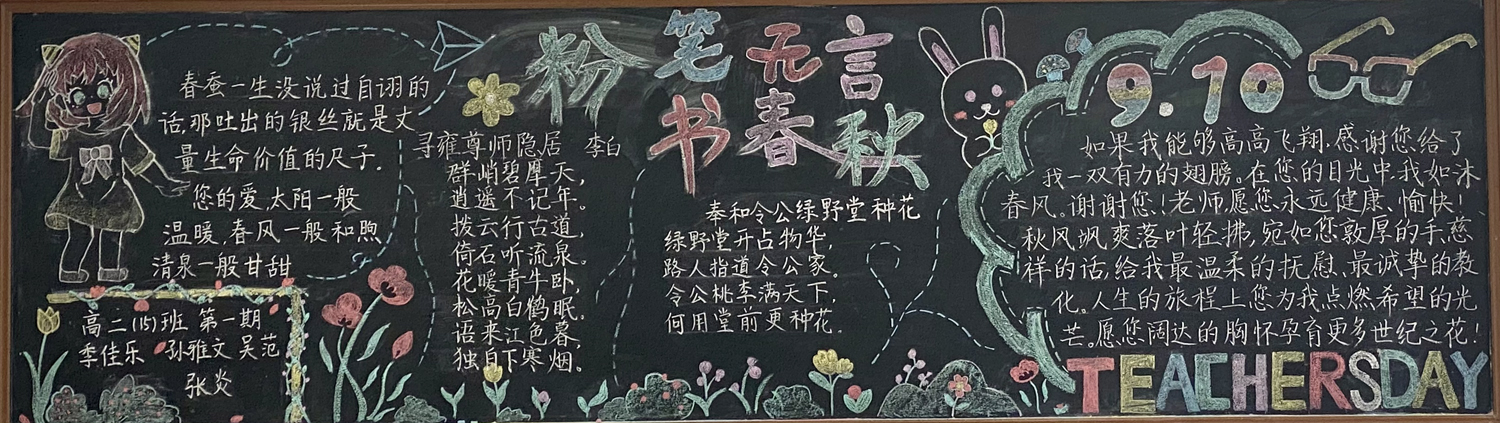 春蚕一生没说过自诩的
话,那吐出的银丝就是丈
量生命价值的尺子.
您的爱,太阳一般
温暖,春风一般和煦
清泉一般甘甜
高二(15)班 第一期
季佳乐 孙雅文 吴范
张炎
寻雍尊师隐居 李白
群峭碧摩天,
逍遥不记年。
拨云行古道,
倚石听流泉。
花暖青牛卧,
松高白鹤眠。
语来江色暮,
独自下寒烟。
粉笔无言
书春秋
奉和令公绿野堂种花
绿野堂开占物华,
路人指道令公家。
令公桃李满天下,
何用堂前更种花.
9.10
如果我能够高高飞翔.感谢您给了
我一双有力的翅膀。在您的目光中.我如沐
春风。谢谢您!老师愿您永远健康、愉快!
秋风飒爽落叶轻拂,宛如您敦厚的手,慈
祥的话,给我最温柔的抚慰、最诚挚的教
化。人生的旅程上您为我点燃希望的光
芒。愿您阔达的胸怀孕育更多世纪之花!
TEACHERSDAY